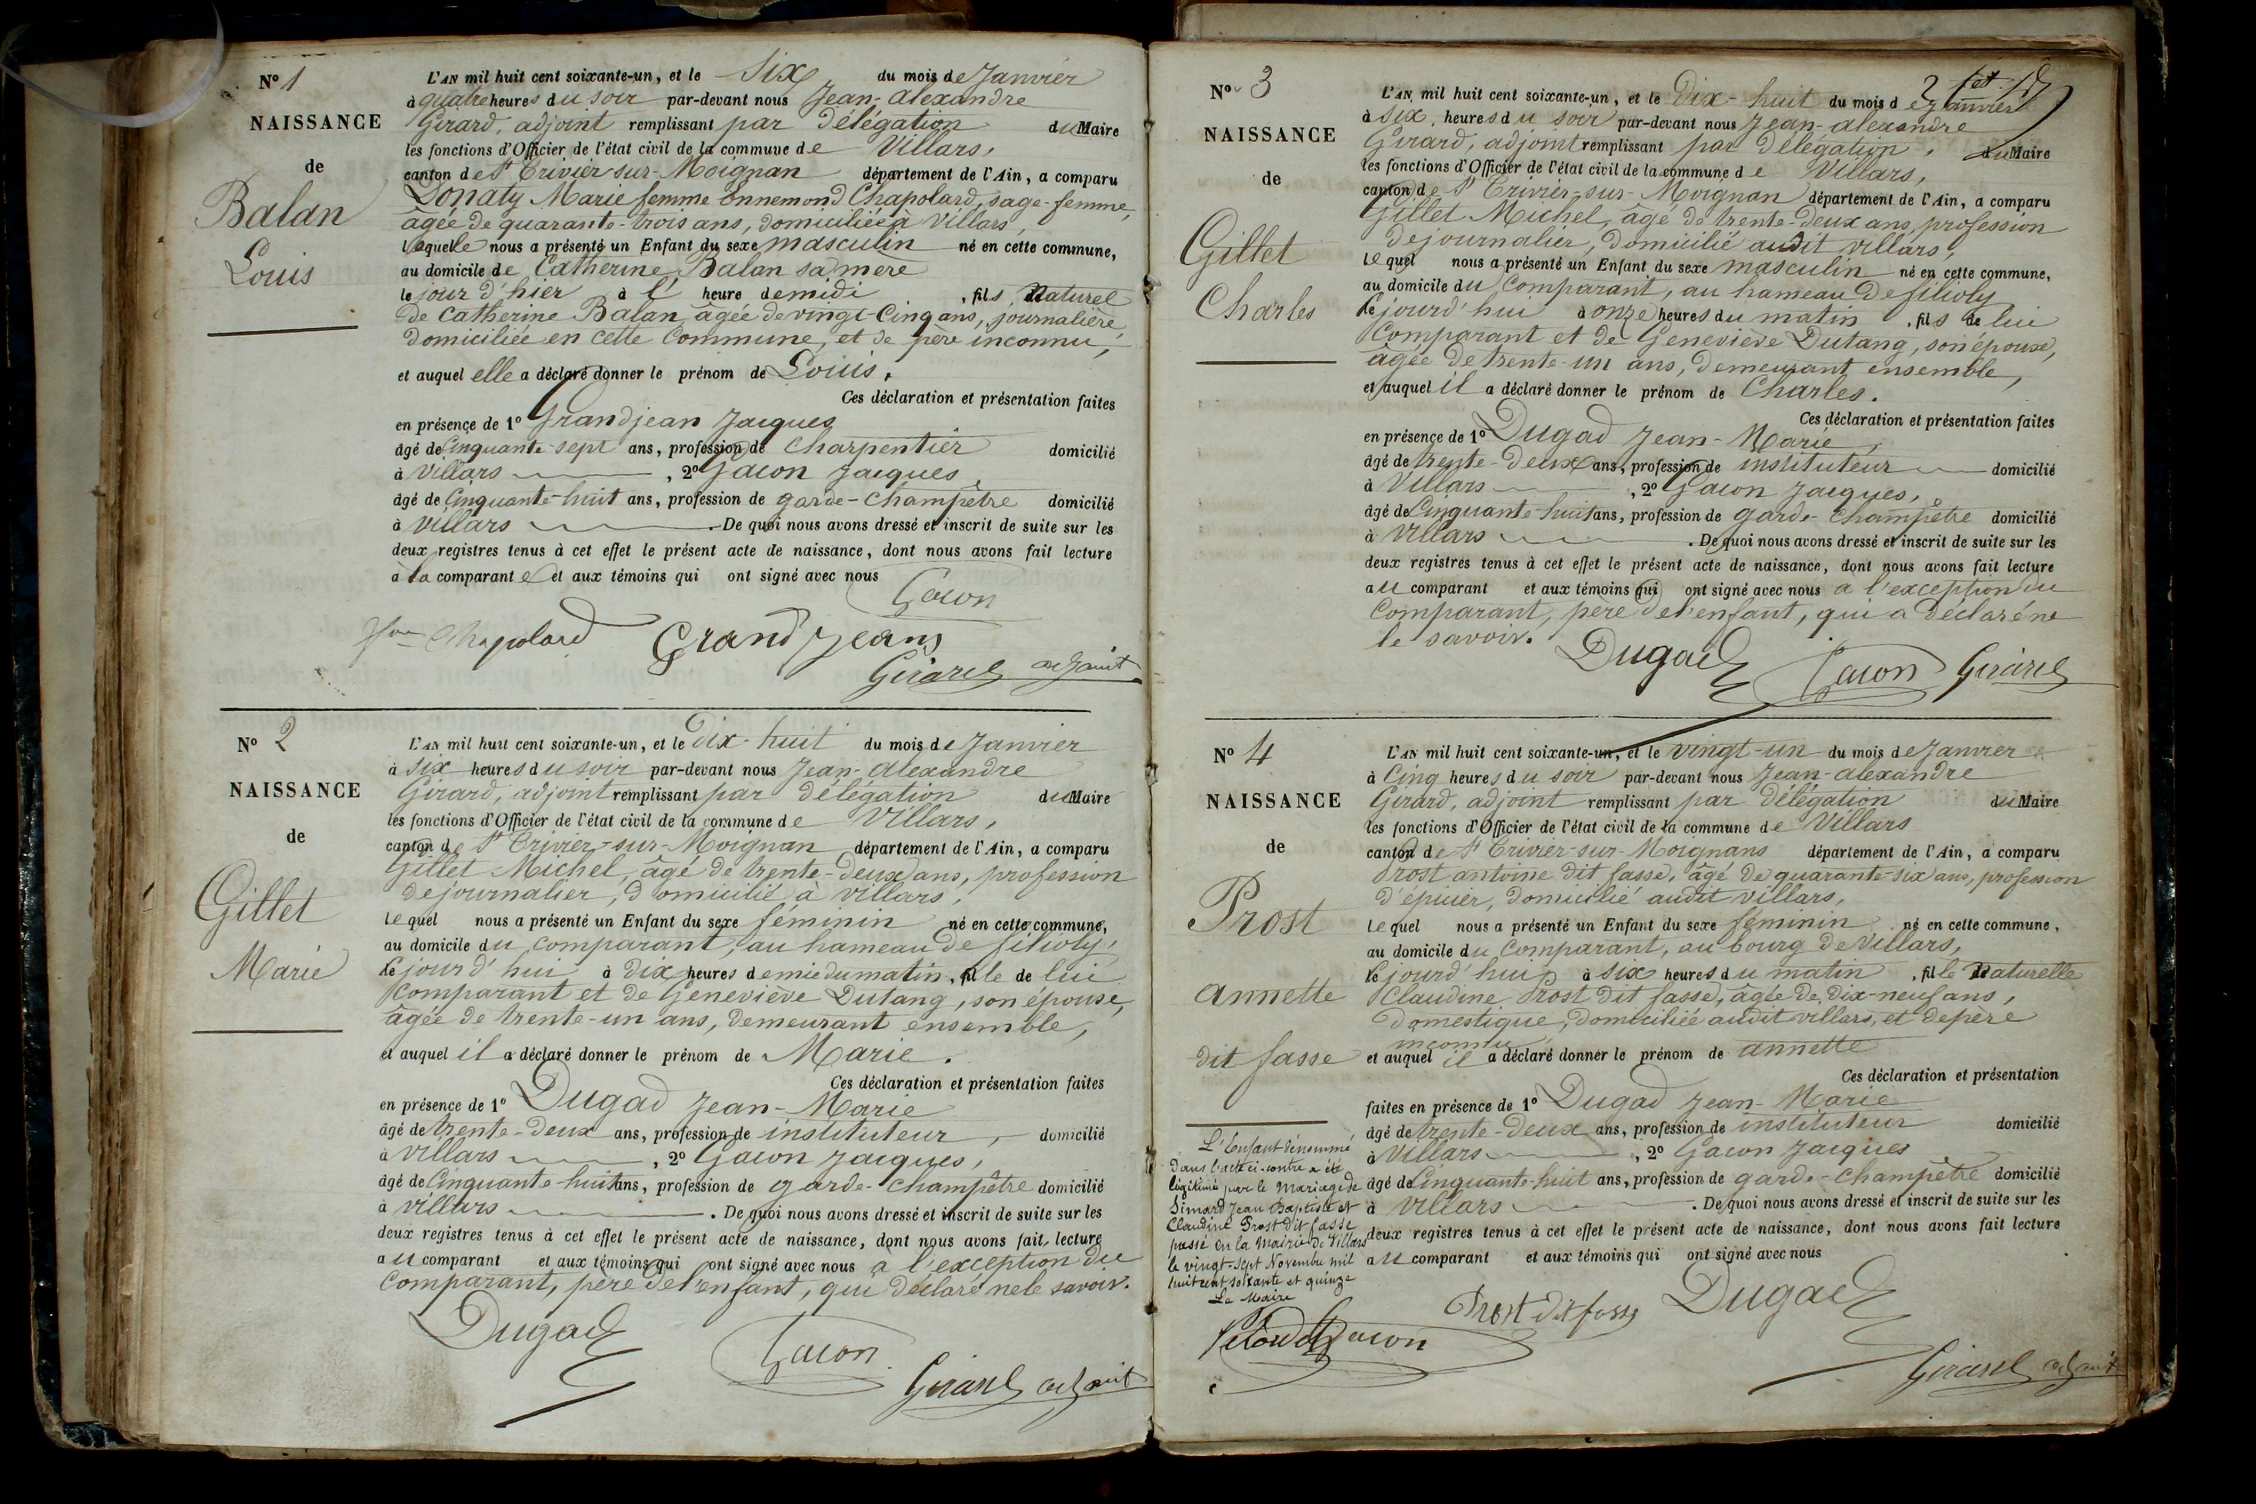 N° 1
NAISSANCE
de
Balan
Louis
L'AN mil huit cent soixante-un, et le six du mois de Janvier
à quatre heures du soir par-devant nous Jean-Alexandre
Girard, adjoint remplissant par délégation du Maire
les fonctions d'Officier de l'état civil de la commune de Villars,
canton de St Trivier-sur-Moignan département de l'Ain, a comparu
Donaty Marie femme Ennemond Chapolard, sage-femme,
âgée de quarante-trois ans, domiciliée à Villars,
laquelle nous a présenté un Enfant du sexe masculin né en cette commune,
au domicile de Catherine Balan sa mère
le jour d'hier à l' heure de midi, fils Naturel
de Catherine Balan âgée de vingt-cinq ans, journalière,
domiciliée en cette commune, et de père inconnu,
et auquel elle a déclaré donner le prénom de Louis.
Ces déclaration et présentation faites
en présence de 1° Grandjean Jacques
âgé de cinquante-sept ans, profession de charpentier domicilié
à Villars, 2° Gacon Jacques,
âgé de cinquante-huit ans, profession de garde-champêtre domicilié
à Villars. De quoi nous avons dressé et inscrit de suite sur les
deux registres tenus à cet effet le présent acte de naissance, dont nous avons fait lecture
à la comparante et aux témoins qui ont signé avec nous
Gacon
fme Chapolard Grandjean
Girard adjoint
N° 2
NAISSANCE
de
Gillet
Marie
L'AN mil huit cent soixante-un, et le dix-huit du mois de Janvier
à six heures du soir par-devant nous Jean-Alexandre
Girard, adjoint remplissant par délégation du Maire
les fonctions d'Officier de l'état civil de la commune de Villars,
canton de St Trivier-sur-Moignan département de l'Ain, a comparu
Gillet Michel, âgé de trente-deux ans, profession
de journalier, domicilié à Villars,
lequel nous a présenté un Enfant du sexe féminin né en cette commune,
au domicile du comparant, au hameau de filioly,
le jourd'hui à dix heures demie du matin, fille de lui
comparant et de Geneviève Dutang, son épouse,
âgée de trente-un ans, demeurant ensemble,
et auquel il a déclaré donner le prénom de Marie.
Ces déclaration et présentation faites
en présence de 1° Dugad Jean-Marie
âgé de trente-deux ans, profession de instituteur, domicilié
à Villars, 2° Gacon Jacques,
âgé de cinquante-huit ans, profession de garde-champêtre domicilié
à Villars. De quoi nous avons dressé et inscrit de suite sur les
deux registres tenus à cet effet le présent acte de naissance, dont nous avons fait lecture
au comparant et aux témoins qui ont signé avec nous à l'exception du
comparant, père de l'enfant, qui déclaré ne le savoir.
Dugad
Gacon
Girard adjoint
N° 3
NAISSANCE
de
Gillet
Charles
L'AN mil huit cent soixante-un, et le dix-huit du mois de Janvier
à six heures du soir par-devant nous Jean-Alexandre
Girard, adjoint remplissant par délégation, du Maire
les fonctions d'Officier de l'état civil de la commune de Villars,
canton de St Trivier-sur-Moignan département de l'Ain, a comparu
Gillet Michel, âgé de trente-deux ans, profession
de journalier, domicilié audit Villars,
lequel nous a présenté un Enfant du sexe masculin né en cette commune,
au domicile du comparant, au hameau de filioly
le jourd'hui à onze heures du matin, fils de lui
comparant et de Geneviève Dutang, son épouse,
âgée de trente-un ans, demeurant ensemble,
et auquel il a déclaré donner le prénom de Charles.
Ces déclaration et présentation faites
en présence de 1° Dugad Jean-Marie,
âgé de trente-deux ans, profession de instituteur domicilié
à Villars, 2° Gacon Jacques,
âgé de cinquante-huit ans, profession de garde-champêtre domicilié
à Villars. De quoi nous avons dressé et inscrit de suite sur les
deux registres tenus à cet effet le présent acte de naissance, dont nous avons fait lecture
au comparant et aux témoins qui ont signé avec nous à l'exception du
comparant, père de l'enfant, qui a déclaré ne
le savoir.
Dugad Gacon Girard
N° 4
NAISSANCE
de
Prost
annette
dit fasse
L'AN mil huit cent soixante-un, et le vingt-un du mois de Janvier
à cinq heures du soir par-devant nous Jean-Alexandre
Girard, adjoint remplissant par délégation du Maire
les fonctions d'Officier de l'état civil de la commune de Villars
canton de St Trivier-sur-Moignans département de l'Ain, a comparu
Prost antoine dit fasse, âgé de quarante-six ans, profession
d'épicier, domicilié audit Villars,
lequel nous a présenté un Enfant du sexe féminin né en cette commune,
au domicile du comparant, au bourg de Villars,
le jourd'hui à six heures du matin, fille Naturelle
Claudine Prost dit fasse, âgée de dix-neuf ans,
domestique, domiciliée audit Villars, et de père
inconnu,
et auquel il a déclaré donner le prénom de annette
Ces déclaration et présentation
faites en présence de 1° Dugad Jean-Marie
âgé de trente-deux ans, profession de instituteur domicilié
à Villars, 2° Gacon Jacques
âgé de cinquante-huit ans, profession de garde-champêtre domicilié
à Villars. De quoi nous avons dressé et inscrit de suite sur les
deux registres tenus à cet effet le présent acte de naissance, dont nous avons fait lecture
au comparant et aux témoins qui ont signé avec nous
L'Enfant dénommé
dans l'acte ci-contre a été
légitimé par le Mariage de
Simard Jean Baptiste et
Claudine Prost dit fasse
passé en la Mairie de Villars
le vingt-sept Novembre mil
huit cent soixante et quinze
Le Maire
Prost dit fasse Dugad
Gacon
Girard adjoint